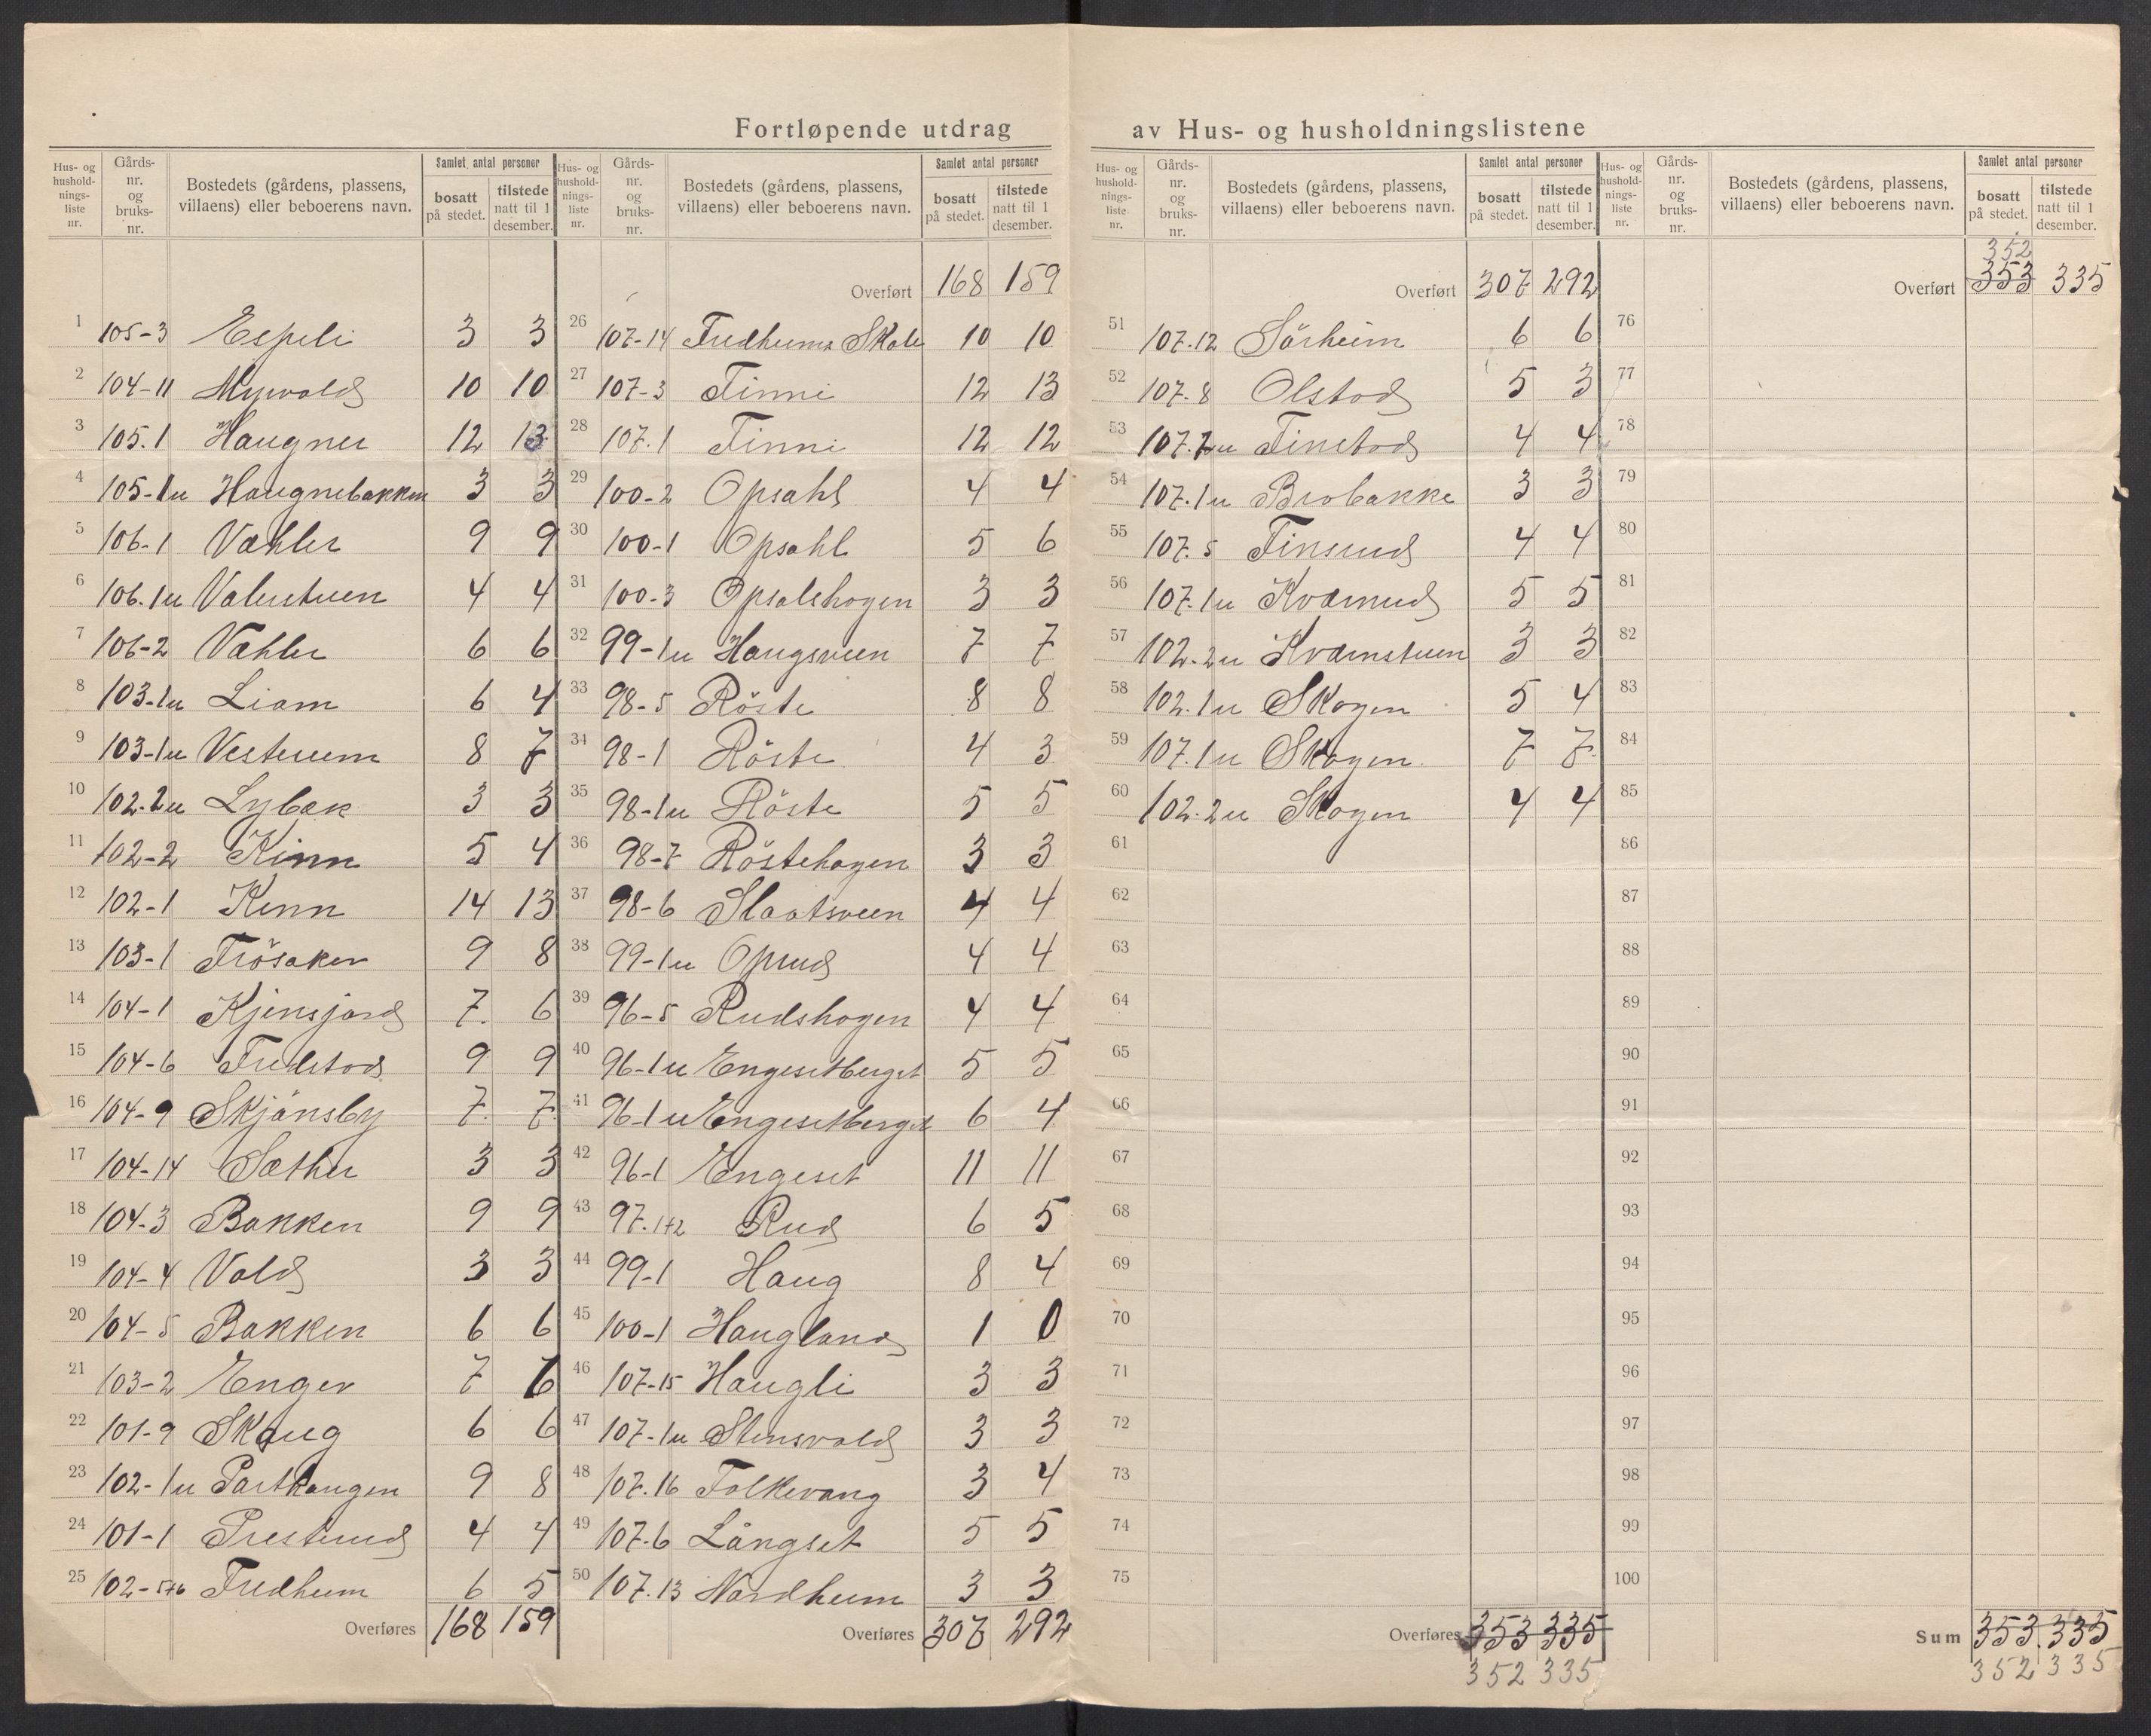 Fortløpende utdrag av Hus- og husholdningslistene
Hus- og hushold-nings-liste nr. Gårds-nr. og bruks-nr. Bostedets (gårdens, plassens, villaens) eller beboerens navn. Samlet antal personer bosatt på stedet. tilstede natt til 1 desember.
1 105-3 Espeli 3 3
2 104-11 Myrvold 10 10
3 105.1 Haugner 12 13
4 105-1u Haugnebakken 3 3
5 106-1 Væhler 9 9
6 106.1u Valerstuen 4 4
7 106-2 Væhler 6 6
8 103-1u Liom 6 4
9 103-1u Vesterum 8 7
10 102-2u Lybæk 3 3
11 102-2 Kinn 5 4
12 102-1 Kinn 14 13
13 103-1 Frösaker 9 8
14 104-1 Kjensjord 7 6
15 104-6 Fredstad 9 9
16 104-9 Skjönsby 7 7
17 104-14 Sæther 3 3
18 104-3 Bakken 9 9
19 104-4 Vold 3 3
20 104-5 Bakken 6 6
21 103-2 Enger 7 6
22 101-9 Skaug 6 6
23 102-1u Parthaugen 9 8
24 101-1 Presterud 4 4
25 102-5+6 Fredheim 6 5
Overføres 168 159
Hus- og hushold-nings-liste nr. Gårds-nr. og bruks-nr. Bostedets (gårdens, plassens, villaens) eller beboerens navn. Samlet antal personer bosatt på stedet. tilstede natt til 1 desember.
Overført 168 159
26 107-14 Fredheims Skole 10 10
27 107-3 Finni 12 13
28 107.1 Finni 12 12
29 100-2 Opsahl 4 4
30 100-1 Opsahl 5 6
31 100-3 Opsalshagen 3 3
32 99-1u Haugsveen 7 7
33 98-5 Röste 8 8
34 98-1 Röste 4 3
35 98-1u Röste 5 5
36 98-7 Röstehagen 3 3
37 98-6 Slaatsveen 4 4
38 99-1u Oprud 4 4
39 96-5 Rudshagen 4 4
40 96-1u Engesetberget 5 5
41 96-1u Engesetberget 6 4
42 96-1 Engeset 11 11
43 97.1+2 Rud 6 5
44 99-1 Haug 8 4
45 100-1 Haugland 1 0
46 107-15 Haugli 3 3
47 107-1u Stensvold 3 3
48 107.16 Folkevang 3 4
49 107-6 Långset 5 5
50 107.13 Nordheim 3 3
Overføres 307 292
Hus- og hushold-nings-liste nr. Gårds-nr. og bruks-nr. Bostedets (gårdens, plassens, villaens) eller beboerens navn. Samlet antal personer bosatt på stedet. tilstede natt til 1 desember.
Overført 307 292
51 107.12 Sörheim 6 6
52 107.8 Olstad 5 3
53 107.1u Finstad 4 4
54 107.1u Brobakke 3 3
55 107.5 Finsrud 4 4
56 107.1u Kværnud 5 5
57 102.2u Kværnstuen 3 3
58 102.1u Skogen 5 4
59 107.1u Skogen 7 7
60 102.2u Skogen 4 4
61
62
63
64
65
66
67
68
69
70
71
72
73
74
75
Overføres 353 335
352 335
Hus- og hushold-nings-liste nr. Gårds-nr. og bruks-nr. Bostedets (gårdens, plassens, villaens) eller beboerens navn. Samlet antal personer bosatt på stedet. tilstede natt til 1 desember.
352
Overført 353 335
76
77
78
79
80
81
82
83
84
85
86
87
88
89
90
91
92
93
94
95
96
97
98
99
100
Sum 353. 335
352 335